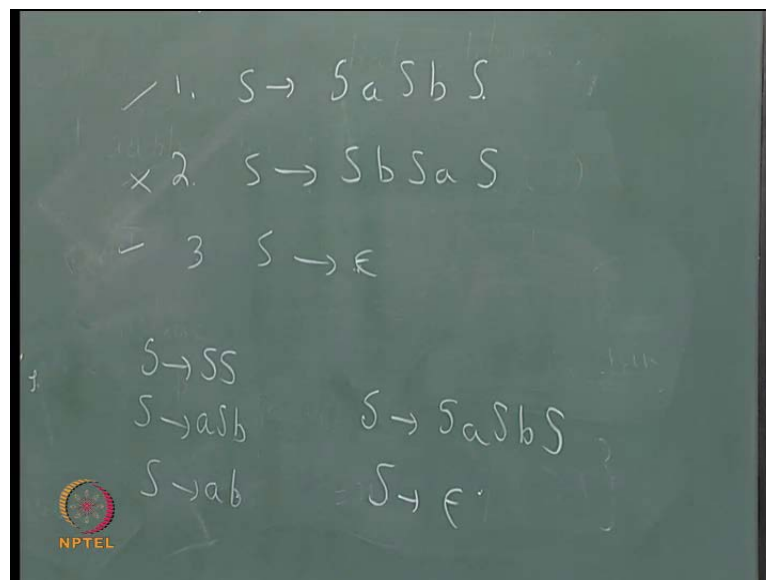 ✓ 1. S → S a S b S.
× 2. S → S b S a S
– 3 S → ε
S → SS
S → aSb S → S a S b S
S → ab S → ε
NPTEL